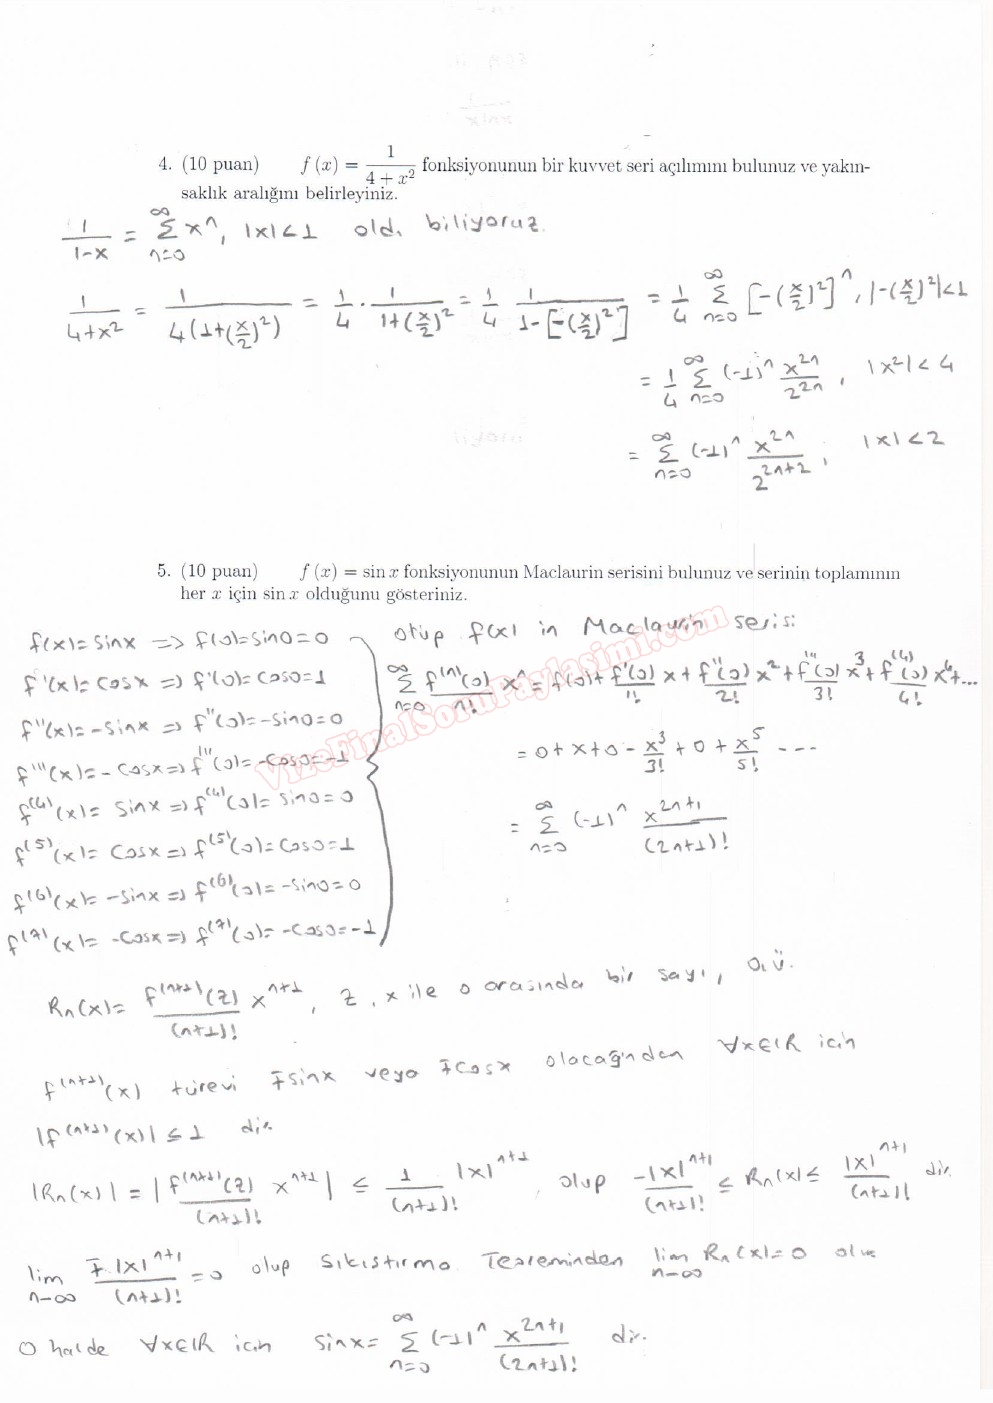 4. (10 puan) f (x) = 1/(4 + x²) fonksiyonunun bir kuvvet seri açılımını bulunuz ve yakın-
saklık aralığını belirleyiniz.
1/(1-x) = ∞Σn=0 xⁿ, |x|<1 old. biliyoruz.
1/(4+x²) = 1/(4(1+(x/2)²)) = 1/4 · 1/(1+(x/2)²) = 1/4 1/(1-[-(x/2)²]) = 1/4 ∞Σn=0 [-(x/2)²]ⁿ, |-(x/2)²|<1
= 1/4 ∞Σn=0 (-1)ⁿ x²ⁿ/2²ⁿ, |x²|<4
= ∞Σn=0 (-1)ⁿ x²ⁿ/2²ⁿ⁺², |x|<2
5. (10 puan) f (x) = sin x fonksiyonunun Maclaurin serisini bulunuz ve serinin toplamının
her x için sin x olduğunu gösteriniz.
f(x)=sinx => f(0)=sin0=0
f'(x)=cosx => f'(0)=cos0=1
f''(x)=-sinx => f''(0)=-sin0=0
f'''(x)=-cosx => f'''(0)=-cos0=-1
f⁽⁴⁾(x)=sinx => f⁽⁴⁾(0)=sin0=0
f⁽⁵⁾(x)=cosx => f⁽⁵⁾(0)=cos0=1
f⁽⁶⁾(x)=-sinx => f⁽⁶⁾(0)=-sin0=0
f⁽⁷⁾(x)=-cosx => f⁽⁷⁾(0)=-cos0=-1
olup f(x) in Maclaurin serisi
∞Σn=0 f⁽ⁿ⁾(0)/n! xⁿ = f(0)+ f'(0)/1! x + f''(0)/2! x² + f'''(0)/3! x³ + f⁽⁴⁾(0)/4! x⁴+...
= 0+x+0- x³/3! +0+ x⁵/5! ---
= ∞Σn=0 (-1)ⁿ x²ⁿ⁺¹/(2n+1)!
VizeFinalSoruPaylasimi.com
Rn(x)= f⁽ⁿ⁺¹⁾(z)/(n+1)! xⁿ⁺¹, z, x ile 0 arasında bir sayı, o.ü.
f⁽ⁿ⁺¹⁾(x) türevi ∓sinx veya ∓cosx olacağından ∀x∈ℝ için
|f⁽ⁿ⁺¹⁾(x)| ≤ 1 dir.
|Rn(x)| = |f⁽ⁿ⁺¹⁾(z)/(n+1)! xⁿ⁺¹| ≤ 1/(n+1)! |x|ⁿ⁺¹, olup -|x|ⁿ⁺¹/(n+1)! ≤ Rn(x) ≤ |x|ⁿ⁺¹/(n+1)! dir.
lim n→∞ ∓|x|ⁿ⁺¹/(n+1)! = 0 olup Sıkıştırma Teoreminden lim n→∞ Rn(x)=0 olur
O halde ∀x∈ℝ için sinx= ∞Σn=0 (-1)ⁿ x²ⁿ⁺¹/(2n+1)! dir.